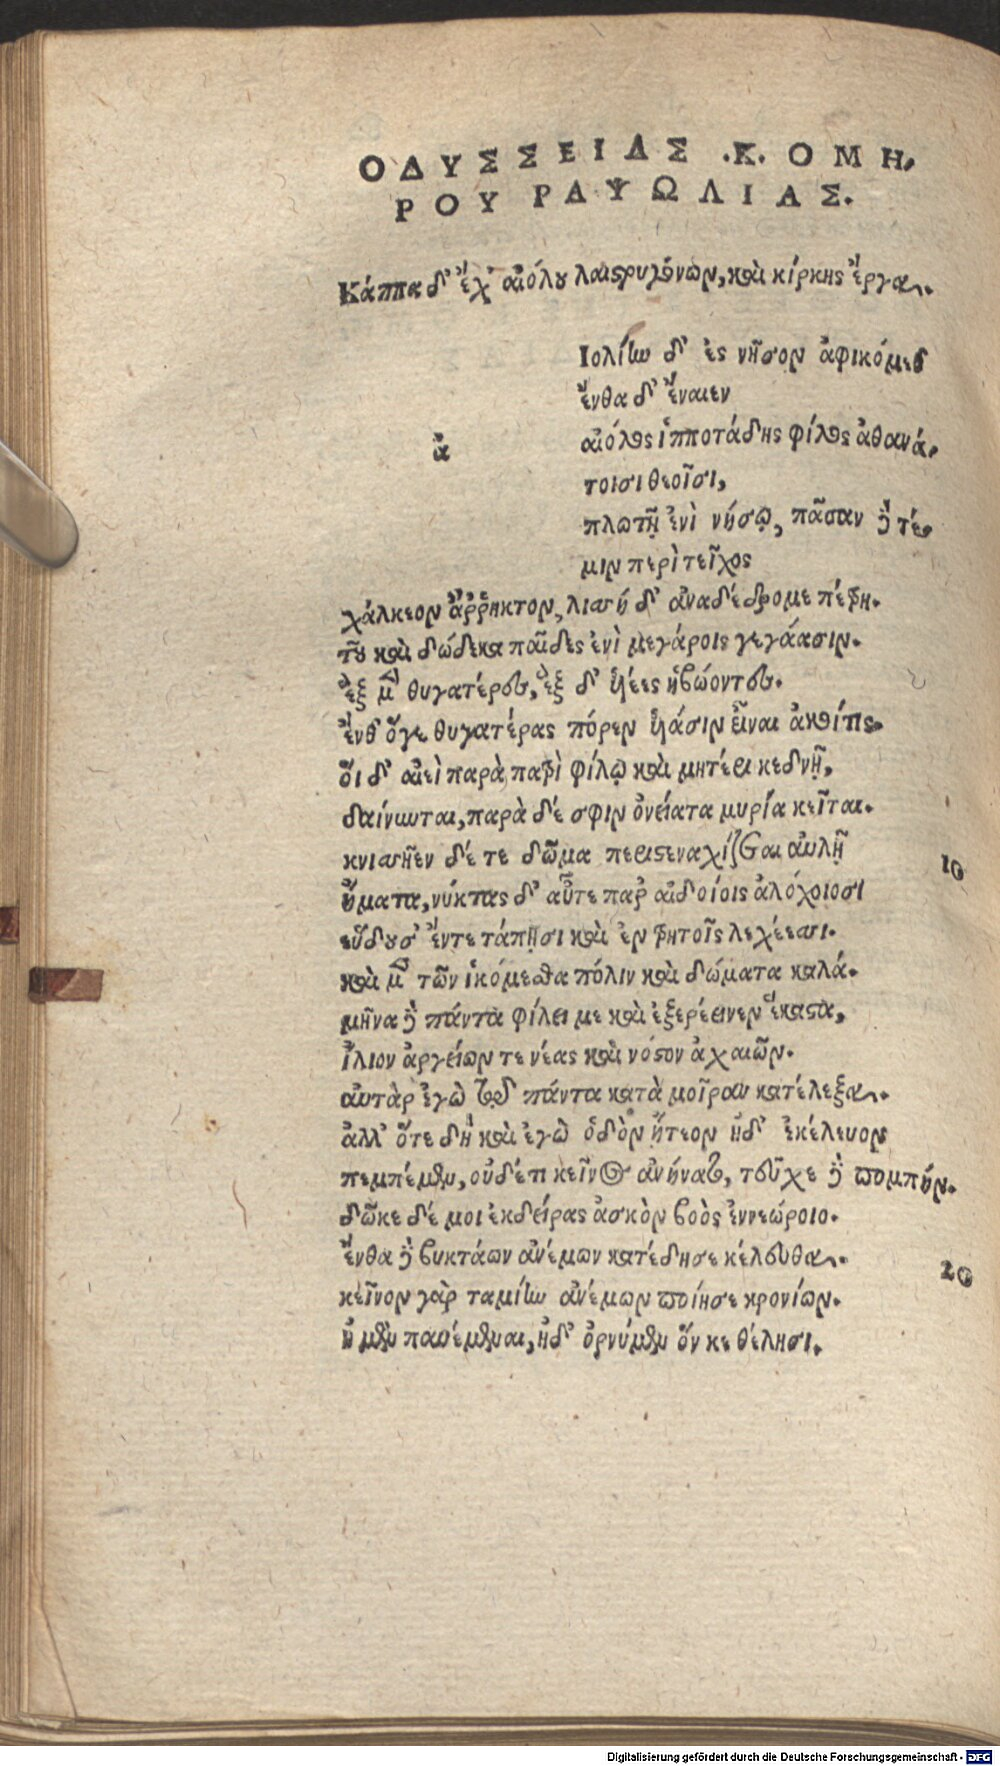 ΟΔΥΣΣΕΙΑΣ .Κ. ΟΜΗ,
ΡΟΥ ΡΑΨΩΔΙΑΣ.
Κάππα δ' ἔχ' αἰόλου λαιστρυγόνων, καὶ κίρκης ἔργα.
Ιολίην δ' ἐς νῆσον ἀφικόμεθ
ἔνθα δ' ἔναιεν
ἀ
αἰόλος ἱπποτάδης φίλος ἀθανά,
τοισι θεοῖσι,
πλωτῇ ἐνὶ νήσῳ, πᾶσαν δέ τέ
μιν περὶ τεῖχος
χάλκεον ἄῤῥηκτον, λισσὴ δ' ἀναδέδρομε πέτρη.
τοῦ καὶ δώδεκα παῖδες ἐνὶ μεγάροις γεγάασιν.
ἓξ μὲν θυγατέρες, ἓξ δ' υἱέες ἡβώοντες.
ἔνθ' ὅγε θυγατέρας πόρεν υἱάσιν εἶναι ἀκοίτις.
ὅι δ' αἰεὶ παρὰ πατρὶ φίλῳ καὶ μητέρι κεδνῇ,
δαίνυνται, παρὰ δέ σφιν ὀνείατα μυρία κεῖται.
κνισσῆεν δέ τε δῶμα περιστεναχίζεται αὐλῇ
10
ἤματα, νύκτας δ' αὖτε παρ' αἰδοίοις ἀλόχοισι
εὕδουσ' ἔντε τάπησι καὶ ἐν τρητοῖς λεχέεσσι.
καὶ μὲν τῶν ἱκόμεσθα πόλιν καὶ δώματα καλά.
μῆνα δὲ πάντα φίλει με καὶ ἐξερέεινεν ἕκαστα,
ἴλιον ἀργείων τε νέας καὶ νόστον ἀχαιῶν.
αὐτὰρ ἐγὼ τῷ πάντα κατὰ μοῖραν κατέλεξα.
ἀλλ' ὅτε δὴ καὶ ἐγὼ ὁδὸν ᾔτεον ἠδ' ἐκέλευον
πεμπέμεν, οὐδέτι κεῖνος ἀνήνατο, τεῦχε δὲ πομπήν.
δῶκε δέ μοι ἐκδείρας ἀσκὸν βοὸς ἐννεώροιο.
ἔνθα δὲ βυκτάων ἀνέμων κατέδησε κέλευθα.
20
κεῖνον γὰρ ταμίην ἀνέμων ποίησε κρονίων.
ἠ μὲν παυέμεναι, ἠδ' ὀρνύμεν ὅν κε θέλησι.
Digitalisierung gefördert durch die Deutsche Forschungsgemeinschaft - DFG